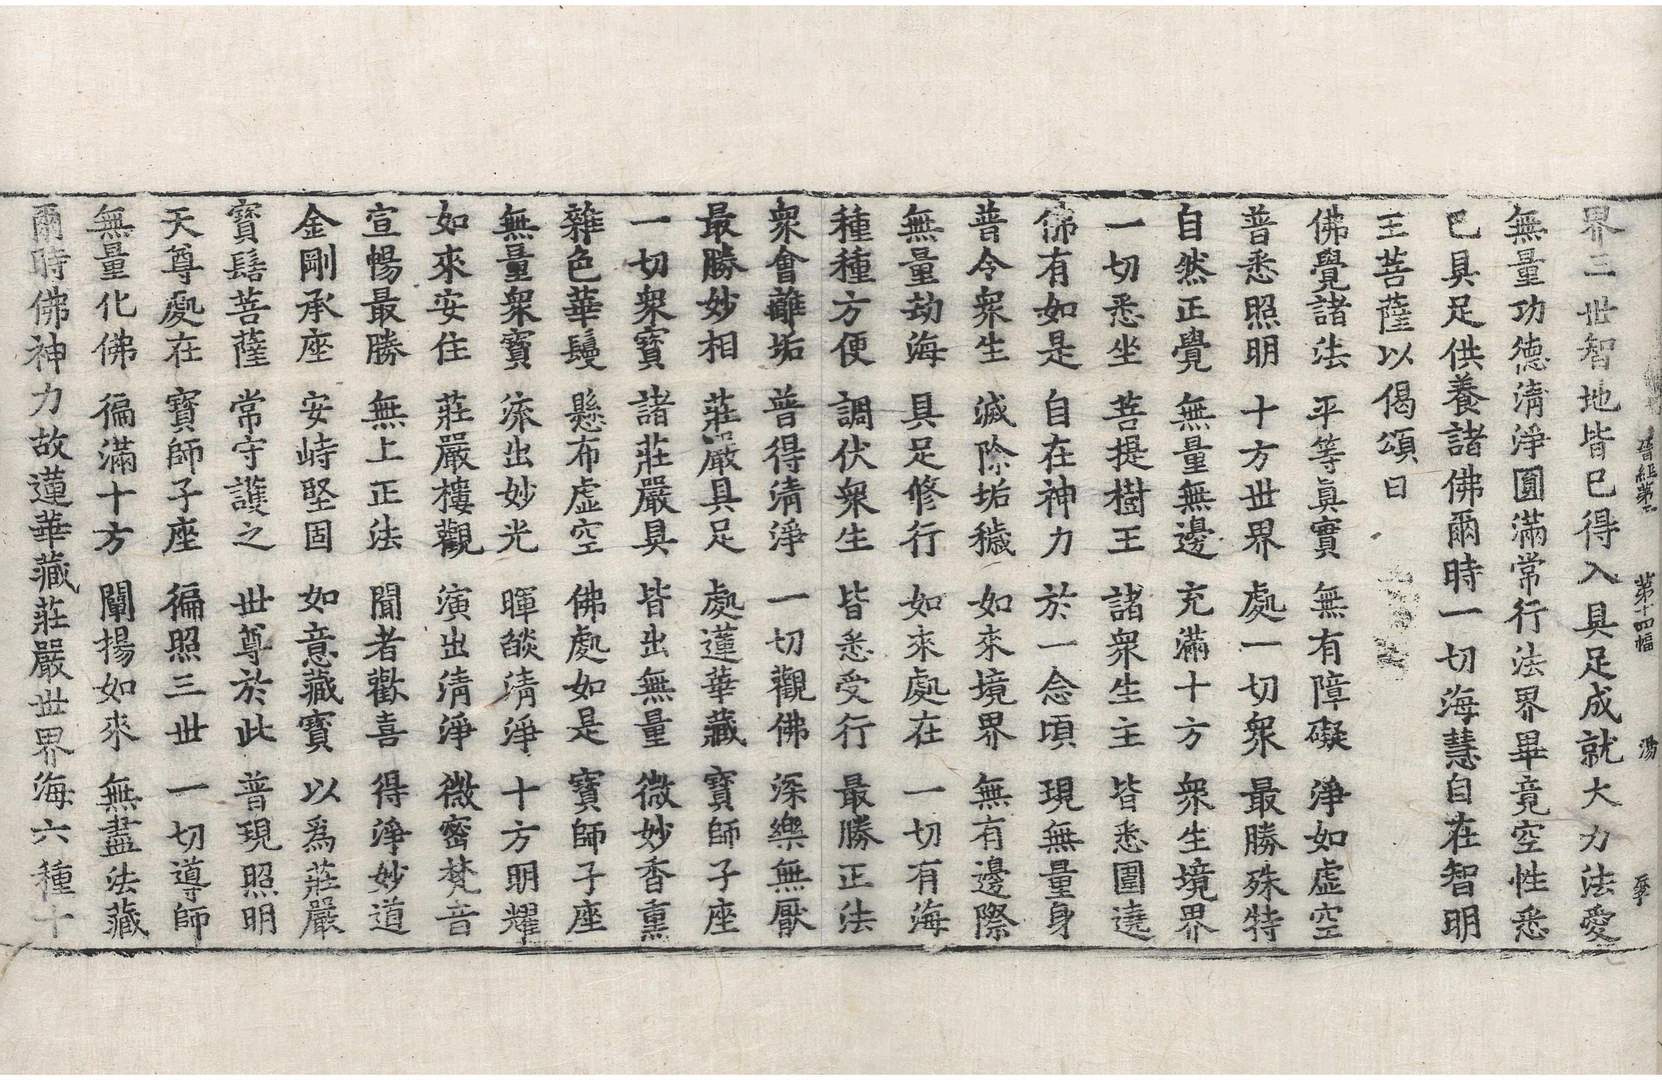 晉經第二 第十四幅 湯
界三世智地皆已得入具足成就大力法愛
無量功德清淨圓滿常行法界畢竟空性悉
已具足供養諸佛爾時一切海慧自在智明
王菩薩以偈頌曰
佛覺諸法 平等真實 無有障礙 淨如虛空
普悉照明 十方世界 處一切衆 最勝殊特
自然正覺 無量無邊 充滿十方 衆生境界
一切悉坐 菩提樹王 諸衆生主 皆悉圍遶
佛有如是 自在神力 於一念頃 現無量身
普令衆生 滅除垢穢 如來境界 無有邊際
無量劫海 具足修行 如來處在 一切有海
種種方便 調伏衆生 皆悉受行 最勝正法
衆會離垢 普得清淨 一切觀佛 深樂無厭
最勝妙相 莊嚴具足 處蓮華藏 寶師子座
一切衆寶 諸莊嚴具 皆出無量 微妙香熏
雜色華鬘 懸布虛空 佛處如是 寶師子座
無量衆寶 流出妙光 暉燄清淨 十方明耀
如來安住 莊嚴樓觀 演出清淨 微密梵音
宣暢最勝 無上正法 聞者歡喜 得淨妙道
金剛承座 安峙堅固 如意藏寶 以爲莊嚴
寶髻菩薩 常守護之 世尊於此 普現照明
天尊處在 寶師子座 徧照三世 一切導師
無量化佛 徧滿十方 闡揚如來 無盡法藏
爾時佛神力故蓮華藏莊嚴世界海六種十